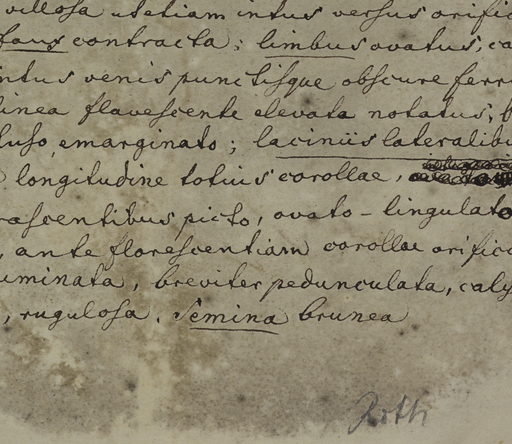 villosa ut etiam intus versus orific
faux contracta; limbus ovatus, ca
intus venis punctisque obscure ferr
linea flavescente elevata notatus;
luso, emarginato; laciniis lateralibu
longitudine totius corollae,
rascentibus picto, ovato-lingulato
, ante florescentiam corollae orific
uminata, breviter pedunculata, caly
, rugulosa. Semina brunea
Roth